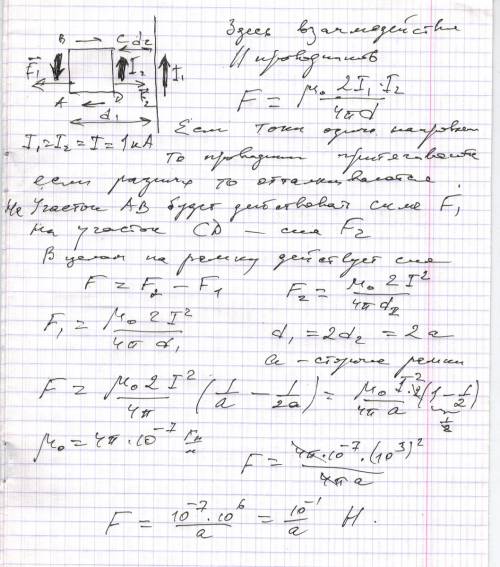 B C d₂
Здесь взаимодействие
// проводников
F₁ I₂ F₂ I₁
A D
d₁
F = μ₀ 2I₁·I₂ / 4πd
Если токи одного направлен
I₁=I₂=I=1кА
то проводники притягиваются
если разных то отталкиваются.
На участок AB будет действовать сила F₁
на участок CD – сила F₂
В целом на рамку действует сила
F = F₂ – F₁ F₂ = μ₀ 2I² / 4π d₂
F₁ = μ₀ 2I² / 4π d₁ d₁ = 2d₂ = 2a
a - сторона рамки
F = μ₀ 2I² / 4π (1/a – 1/2a) = μ₀ I²·2 / 4π a (1 – 1/2)
1/2
μ₀ = 4π·10⁻⁷ Гн/м F = 4π·10⁻⁷·(10³)² / 4π a
F = 10⁻⁷·10⁶ / a = 10⁻¹ / a Н.